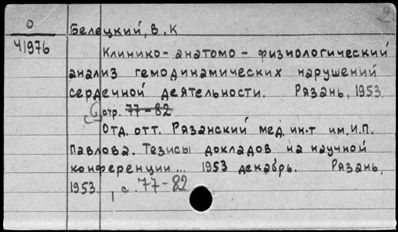 0
Белецкий, В.К
41976
Клинико-анатомо-физиологический
анализ гемодинамических нарушений
сердечной деятельности. Рязань, 1953.
6 стр. 77-82
Отд. отт. Рязанский мед. ин-т им. И.П.
Павлова. Тезисы докладов на научной
конференции... 1953 декабрь. Рязань,
1953, с. 77-82